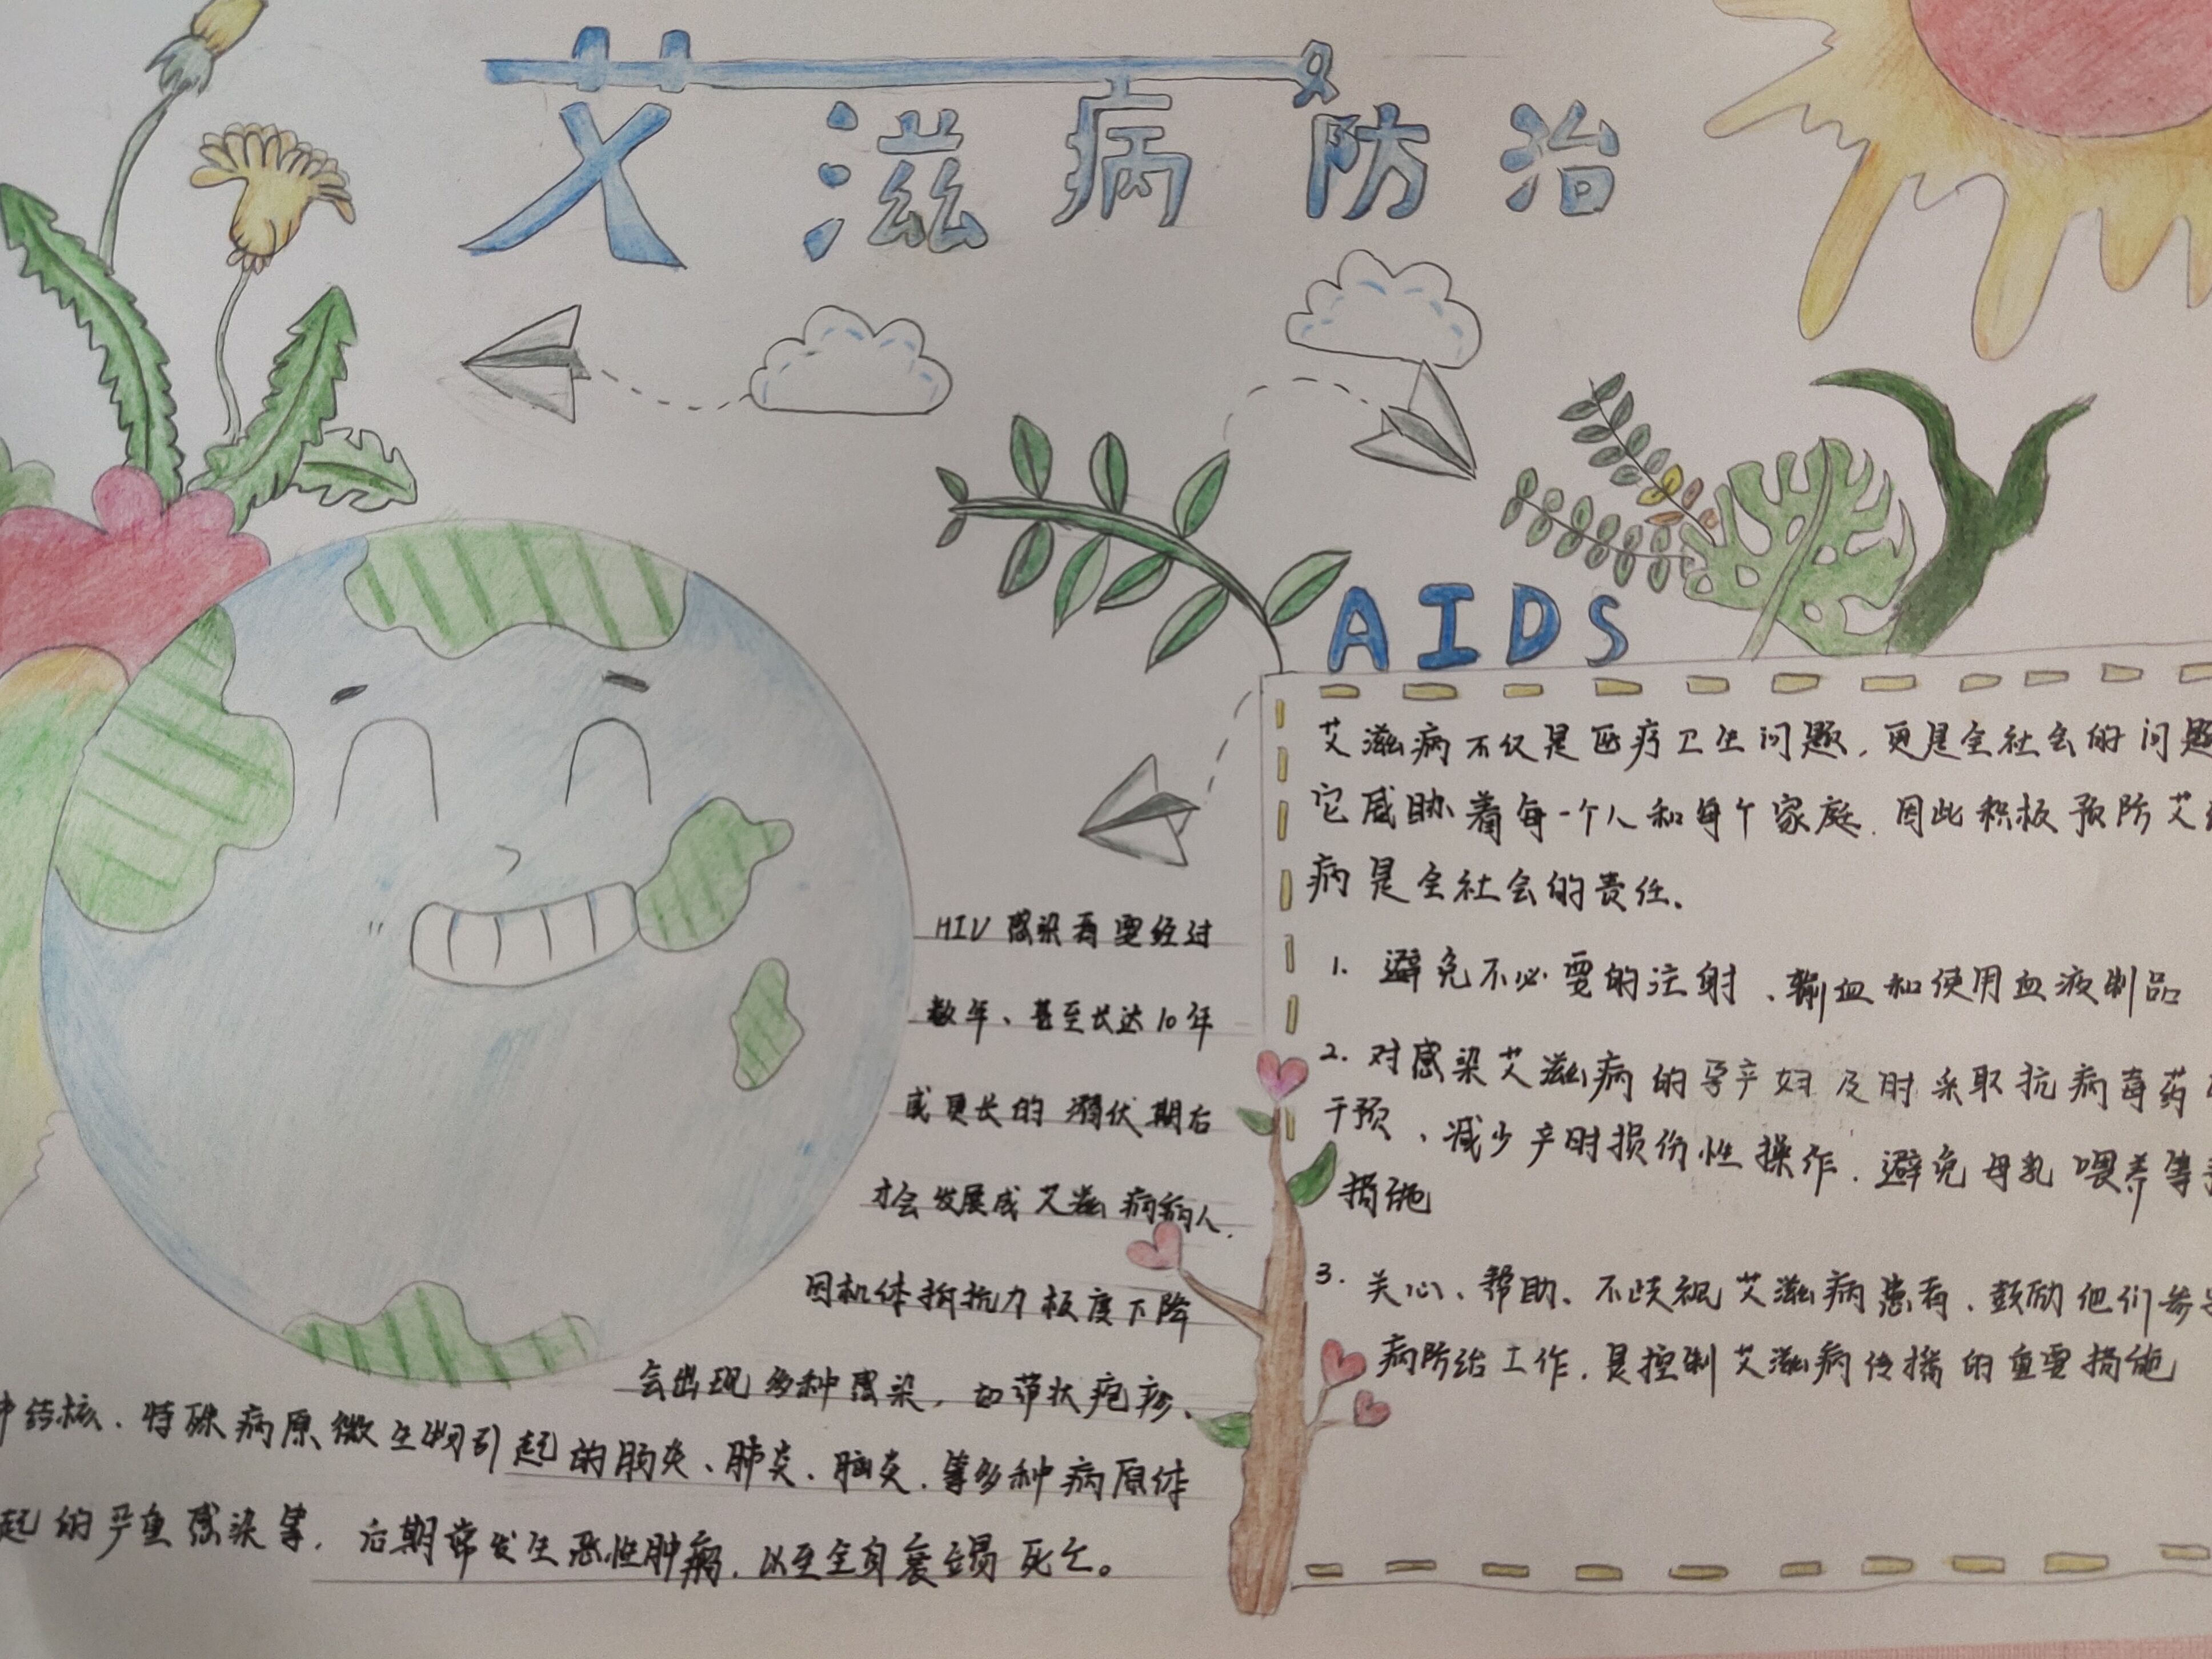 艾滋病防治
AIDS
HIV感染者要经过
数年、甚至长达10年
或更长的潜伏期后
才会发展成艾滋病病人.
因机体抵抗力极度下降
会出现多种感染,如带状疱疹、
结核、特殊病原微生物引起的肠炎、肺炎、脑炎、等多种病原体
起的严重感染等,后期常发生恶性肿瘤,以至全身衰竭死亡。
艾滋病不仅是医疗卫生问题,更是全社会的问题
它威胁着每一个人和每个家庭.因此积极预防艾
病是全社会的责任.
1. 避免不必要的注射、输血和使用血液制品
2. 对感染艾滋病的孕产妇及时采取抗病毒药
干预、减少产时损伤性操作.避免母乳喂养等
措施
3. 关心、帮助、不歧视艾滋病患者,鼓励他们参
病防治工作.是控制艾滋病传播的重要措施